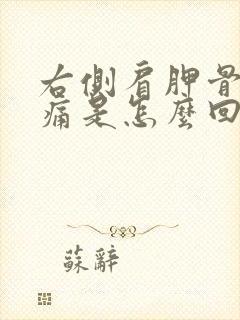 右側肩胛骨
痛是怎麼回
蘇辭